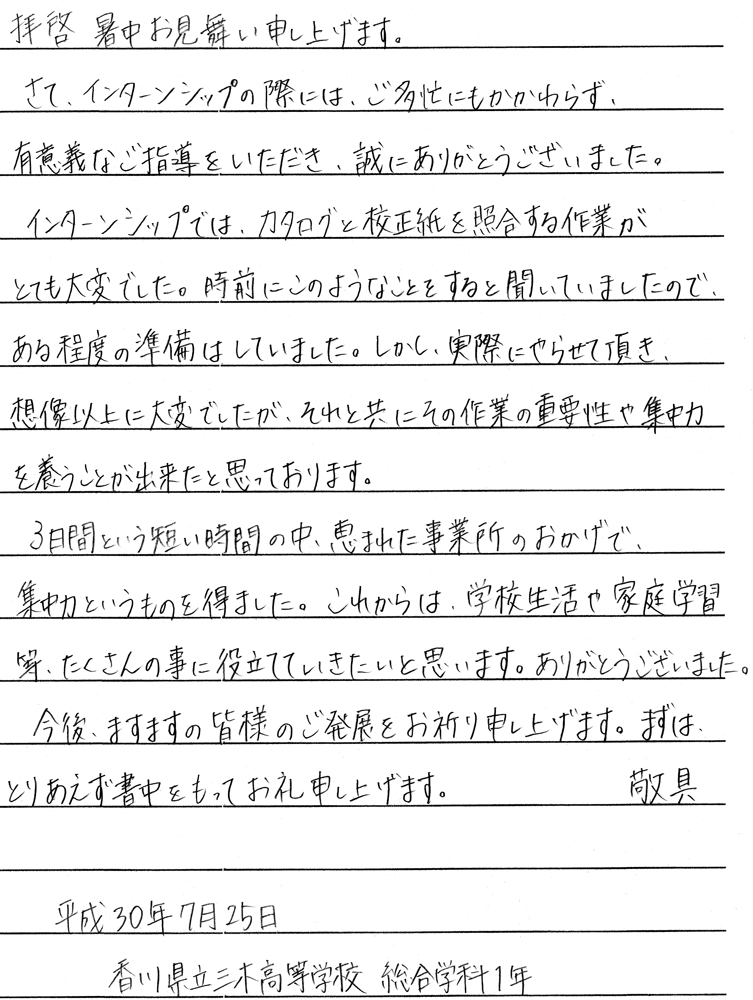 拝啓 暑中お見舞い申し上げます。
さて、インターンシップの際には、ご多忙にもかかわらず、
有意義なご指導をいただき、誠にありがとうございました。
インターンシップでは、カタログと校正紙を照合する作業が
とても大変でした。時前にこのようなことをすると聞いていましたので、
ある程度の準備はしていました。しかし、実際にやらせて頂き、
想像以上に大変でしたが、それと共にその作業の重要性や集中力
を養うことが出来たと思っております。
3日間という短い時間の中、恵まれた事業所のおかげで、
集中力というものを得ました。これからは、学校生活や家庭学習
等、たくさんの事に役立てていきたいと思います。ありがとうございました。
今後、ますますの皆様のご発展をお祈り申し上げます。まずは、
とりあえず書中をもってお礼申し上げます。 敬具
平成30年7月25日
香川県立三木高等学校 総合学科1年